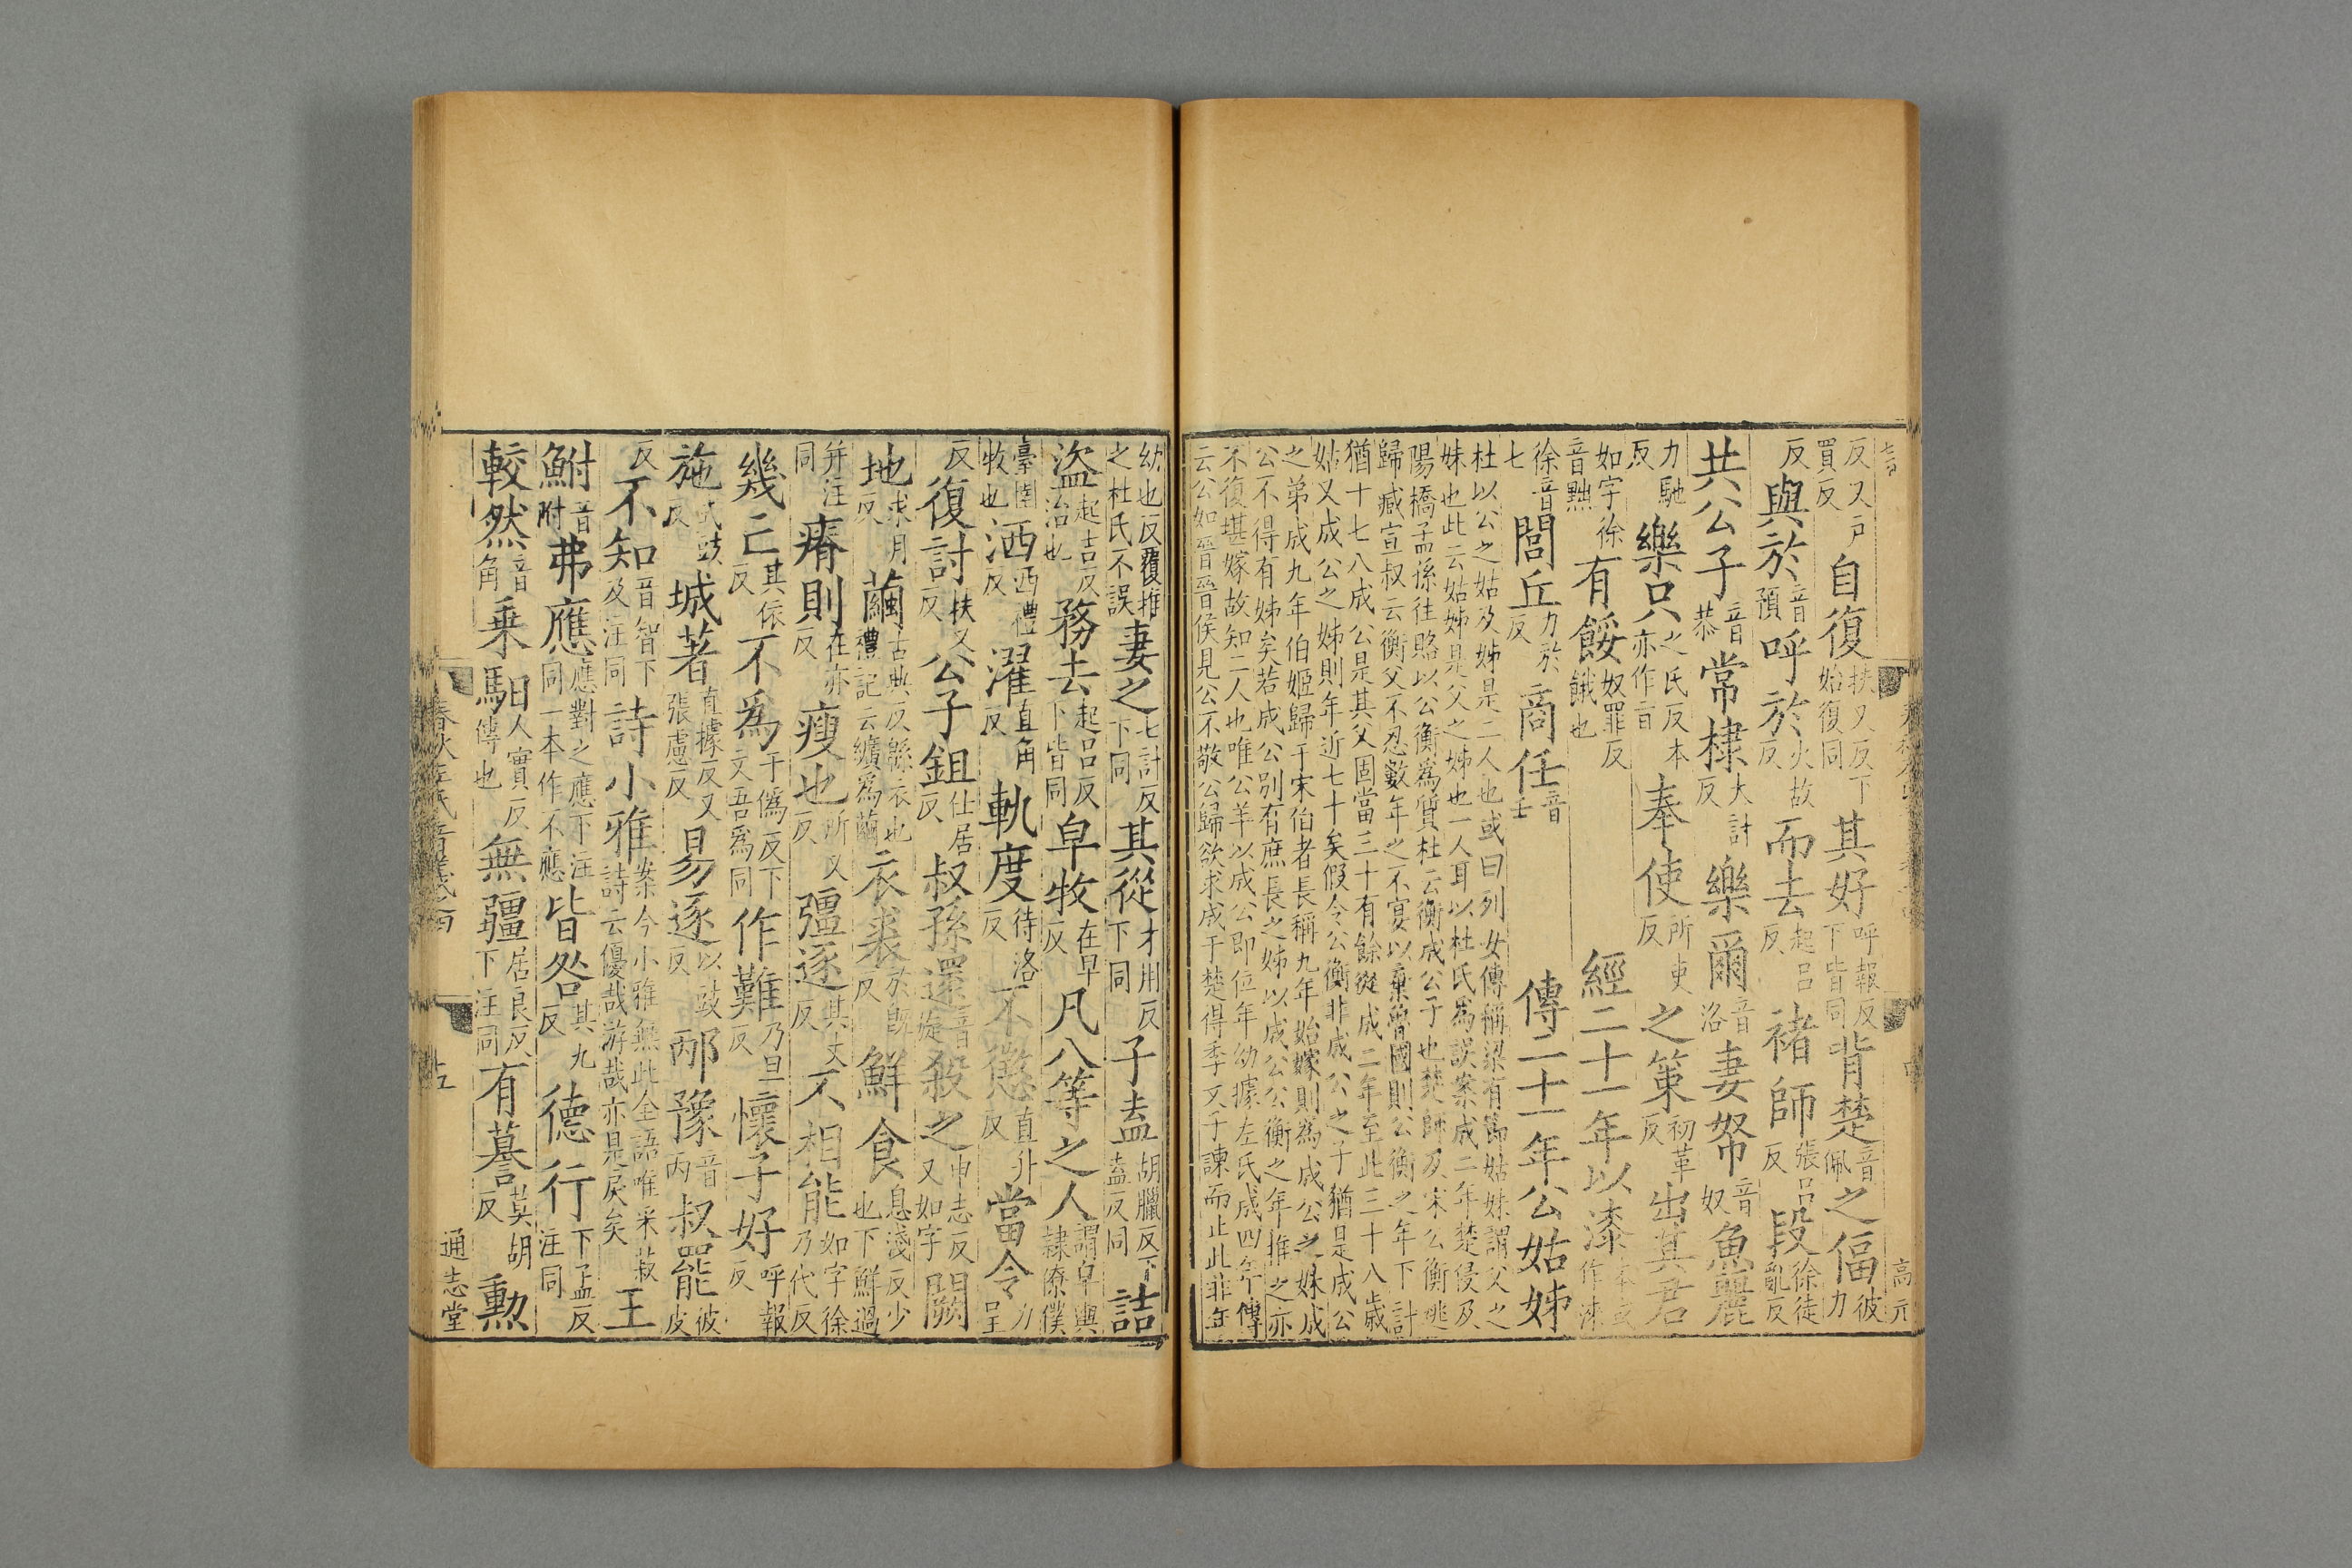 反又戶買反自復扶又反下始復同其好呼報反下皆同背楚音佩之偪彼力
反與於音預呼於火故反而去起呂反褚師張呂反段徐徒亂反
共公子音恭常棣大計反樂爾音洛妻帑音奴魚麗
力馳反樂只之氏反本亦作旨奉使所吏反之策初革反出其君
如字徐音黜有餒奴罪反餓也經二十一年以漆本或作淶
徐音七閭丘力於反商任音壬傳二十一年公姑姊
杜以公之姑及姊是二人也或曰列女傳稱梁有節姑妹謂父之
妹也此云姑姊是父之姊也一人耳以杜氏爲誤案成二年楚侵及
陽橋孟孫往賂以公衡爲質杜云衡成公子也楚師及宋公衡逃
歸臧宣叔云衡父不忍數年之不宴以棄魯國則公衡之年下計
猶十七八成公是其父固當三十有餘從成二年至此三十八歲
姑又成公之姊則年近七十矣假令公衡非成公之子猶是成公
之弟成九年伯姬歸于宋伯者長稱九年始嫁則爲成公之妹成
公不得有姊矣若成公別有庶長之姊以成公公衡之年推之亦
不復堪嫁故知二人也唯公羊以成公即位年幼據左氏成四年傳
云公如晉晉侯見公不敬公歸欲求成于楚得季文子諫而止此非年
高元
幼也反覆推之杜氏不誤妻之七計反下同其從才用反下同子盍胡臘反下盍反同詰
起吉反治也盜務去起呂反下皆同皁牧在早反凡八等之人謂皁輿隸僚僕
臺圉牧也洒西禮反濯直角反軌度待洛反不懲直升反當令力呈
反復討扶又反公子鉏仕居反叔孫還音旋殺之申志反又如字闕
地求月反繭古典反緜衣也禮記云纊爲繭衣裘於旣反鮮食息淺反少也下鮮過
并注同瘠則在亦反瘦也所又反彊逐其丈反不相能如字徐乃代反
幾己其依反不爲于僞反下文吾爲同作難乃旦反懷子好呼報反
施式豉反城著直據反又張慮反易逐以豉反邴豫音丙叔羆彼皮
反不知音智下及注同詩小雅案今小雅無此全語唯采菽詩云優哉游哉亦是戾矣王
鮒音附弗應應對之應下注同一本作不應皆咎其九反德行下孟反注同
較然音角乗馹人實反傳也無彊居良反下注同有謩莫胡反勲
春秋左氏音義
十五
通志堂